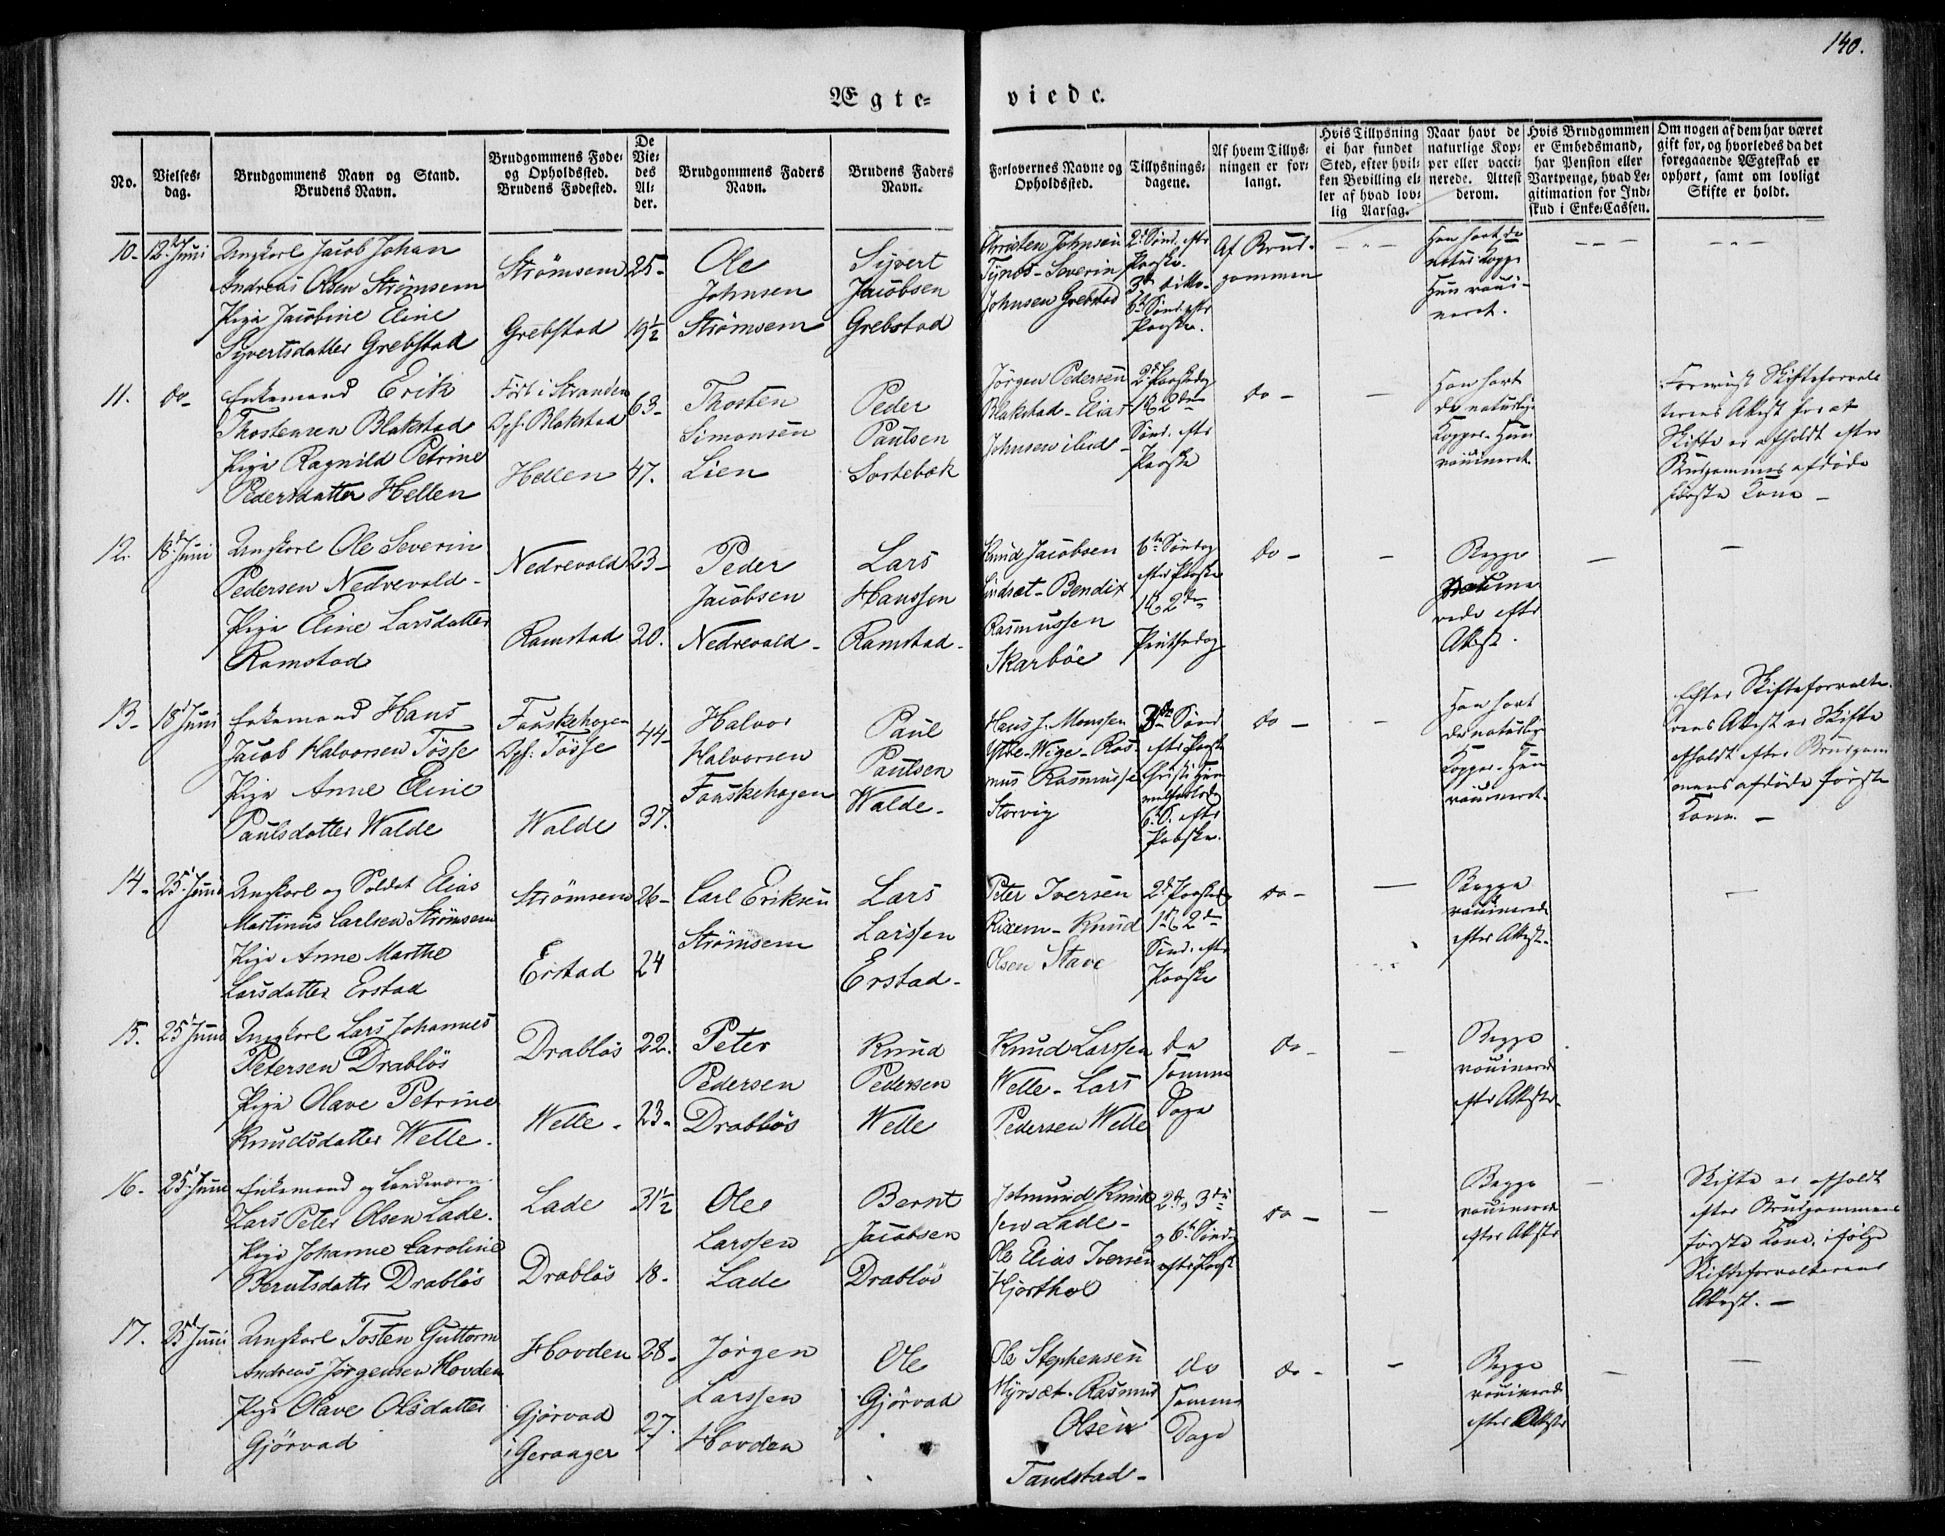 140.
Ægte-
viede.
No.
Vielses-
dag.
Brudgommens Navn og Stand.
Brudens Navn.
Brudgommens Føde-
og Opholdssted.
Brudens Fødested.
De
Vie-
des
Al-
der.
Brudgommens Faders
Navn.
Brudens Faders
Navn.
Forlovernes Navne og
Opholdssted.
Tillysnings-
dagene.
Af hvem Tillys-
ningen er for-
langt.
Hvis Tillysning
ei har fundet
Sted, efter hvil-
ken Bevilling el-
ler af hvad lov-
lig Aarsag.
Naar havt de
naturlige Kop-
per eller vacci-
nerede. Attest
derom.
Hvis Brudgommen
er Embedsmand,
har Pension eller
Vartpenge, hvad Le-
gitimation for Ind-
skud i Enke-Cassen.
Om nogen af dem har været
gift før, og hvorledes da det
foregaaende Ægteskab er
ophørt, samt om lovligt
Skifte er holdt.
10-
12. Juni
Ungkarl Jacob Johan
Andreas Olsen Strømsem
Pige Jacobine Eline
Syvertsdatter Grebstad
Strømsem
Grebstad
25-
19½
Ole
Johnsen
Strømsem
Syvert
Jacobsen
Grebstad
Christen Johnsen
Tynes- Severin
Johnsen Grebstad
2d Sønd. efter
Paaske.
3de ditto-
6te Sønd. efter
Paaske.
Af Brud-
gommen
Han havt de
natur. Kopp.
Hun vacci-
neret.
11.
do-
Enkemand Erik
Thostensen Blakstad
Pige Ragnild Petrine
Pedersdatter Hellen
Fød i Stranden
Oph. Blakstad
Hellen
63-
47.
Thosten
Simonsen
Lien
Peder
Paulsen
Sortebæk
Jørgen Pedersen
Blakstad- Elias
Johnsen ibid-
2d Paaskedag
1 & 2den
Sønd. efter
Paaske
do-
Han havt
de naturlige
Kopper- Hun
vaccineret.
Skifteforval-
terens Attest for at
Skifte er afholdt efter
Brudgommens afdøde
første Kone-
12.
18. Juni
Ungkarl Ole Severin
Pedersen Nedrevold-
Pige Eline Larsdatter
Ramstad
Nedrevold
Ramstad
23-
20.
Peder
Jacobsen
Nedrevold-
Lars
Hanssen
Ramstad-
Knud Jacobsen
Lindset- Bendix
Rasmussen
Skarbøe
6te Søndag
efter Paaske
1 & 2den
Pintsedag
do-
Begge
vaccine-
rede efter
Attest.
13-
18. Juni
Enkemand Hans
Jacob Halvorsen Tøsse
Pige Anne Eline
Paulsdatter Walde
Fauskehagen
Oph. Tøsse
Walde
44-
37.
Halvor
Halvorsen
Fauskehagen
Paul
Paulsen
Walde-
Hans J. Monssen
Ytre-Wige- Ras-
mus Rasmussen
Storvig
3de Sønd.
efter Paaske
Christi Him-
melfartsdag
6. S. efter
Paaske.
do-
Han havt
de naturlige
Kopper- Hun
vaccineret.
Efter Skifteforvalte-
rens Attest er Skifte
afholdt efter Brudgom-
mens afdøde første
Kone.-
14-
25. Juni
Ungkarl og Soldat Elias
Martinus Carlsen Strømsem
Pige Anne Marthe
Larsdatter Erstad
Strømsem
Erstad
26-
24
Carl Eriksen
Strømsem
Lars
Larssen
Erstad-
Peter Iversen
Rixem- Knud
Olsen Stave
2d Paaskedag
1 & 2den
Sønd. efter
Paaske
do-
Begge
vaccinerede
efter Attest-
15.
25 Juni
Ungkarl Lars Johannes
Petersen Drabløs
Pige Olave Petrine
Knudsdatter Welle.
Drabløs
Welle.
22.
23-
Peter
Pedersen
Drabløs
Knud
Pedersen
Welle
Knud Larssen
Welle- Lars
Pedersen Welle
de
samme
Dage
do-
Begge
vaccinerede
efter Attester-
16.
25. Juni
Enkemand og Landværn-
Lars Peter Olsen Lade.
Pige Johanne Caroline
Berntsdatter Drabløs
Lade
Drabløs
31½
18.
Ole
Larssen
Lade
Bernt
Jacobsen
Drabløs
Jetmund Knud-
sen Lade-
Ole Elias Iversen
Hjorthol
2d, 3de
og 6te Sønd.
efter Paask.
do-
Begge
vaccinerede
efter Attester
Skifte er afholdt
efter Brudgommens
første Kone, ifølge
Skifteforvalterens
Attest.-
17.
25 Juni
Ungkarl Tosten Guttorm
Andreas Jørgensen Hovden
Pige Olave Olsdatter
Gjørvad
Hovden
Gjørvad
i Geranger
28-
27.
Jørgen
Larssen
Hovden
Ole
Gjørvad
Ole Stephensen
Myrset- Rasmus
Olsen
Tandstad-
de
samme
Dage
do-
Begge
vaccinerede
efter Attester